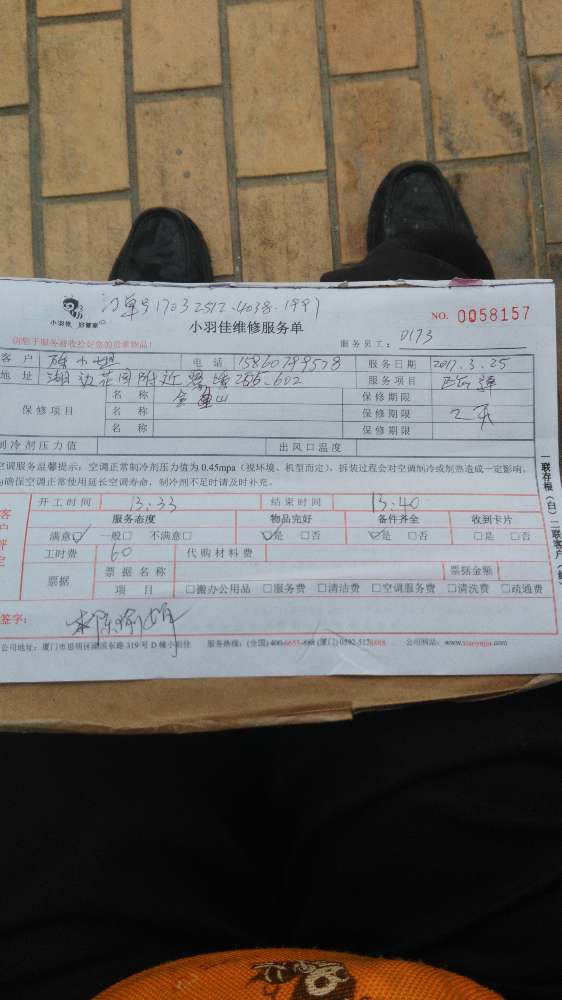 订单号1703 2512-4038-1991
小羽佳 好管家
小羽佳维修服务单
NO. 0058157
请您于服务前收拾好您的贵重物品!
服务员工: 0173
客 户 陈小姐 电 话 15860799578 服务日期 2017.3.25
地 址 湖边花园附近 255-602 服务项目
保修项目 名 称 保修期限
名 称 保修期限
名 称 保修期限
制冷剂压力值 出风口温度
空调服务温馨提示:空调正常制冷剂压力值为 0.45mpa(视环境、机型而定),拆放过程会对空调制冷或制热造成一定影响,
为确保空调正常使用延长空调寿命,制冷剂不足时请及时补充。
开工时间 13:33 结束时间 13:40
服务态度 物品完好 备件齐全 收到卡片
满意☑ 一般□ 不满意□ ☑是 □否 ☑是 □否 □是 □否
工时费 60 代购材料费
票据 票据名称 票据金额
项 目 □搬办公用品 □服务费 □清洁费 □空调服务费 □清洗费 □疏通费
签字:
公司地址:厦门市思明区 319 号 D 幢小羽佳 服务热线:(全国) 公司网站:www.xiaoyujia.com
一联存根(白)二联客户